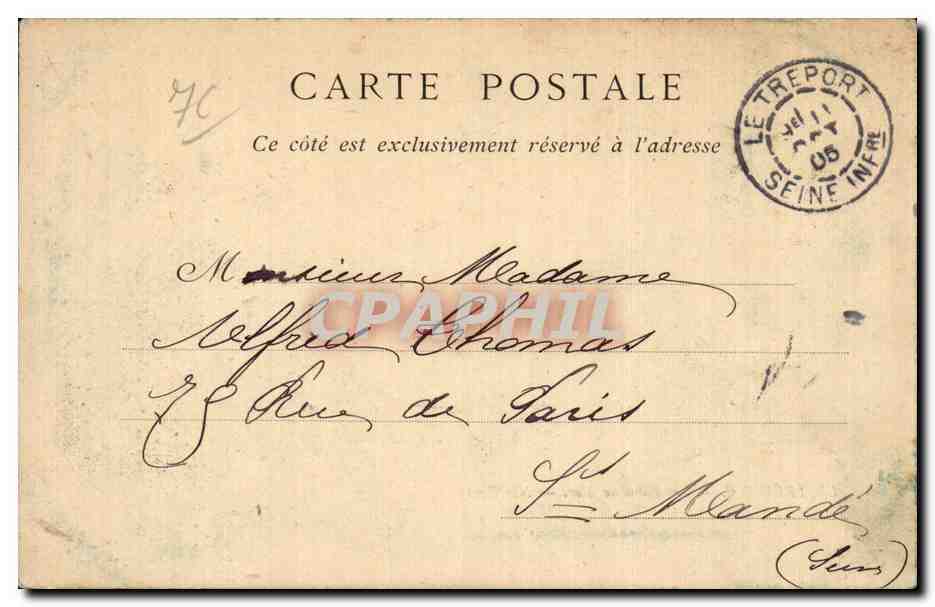 7C
CARTE POSTALE
Ce côté est exclusivement réservé à l'adresse
LE TREPORT
05
SEINE INFRE
Monsieur Madame
CPAPHIL
Alfred Thomas
75 Rue de Paris
St Mandé
(Seine)